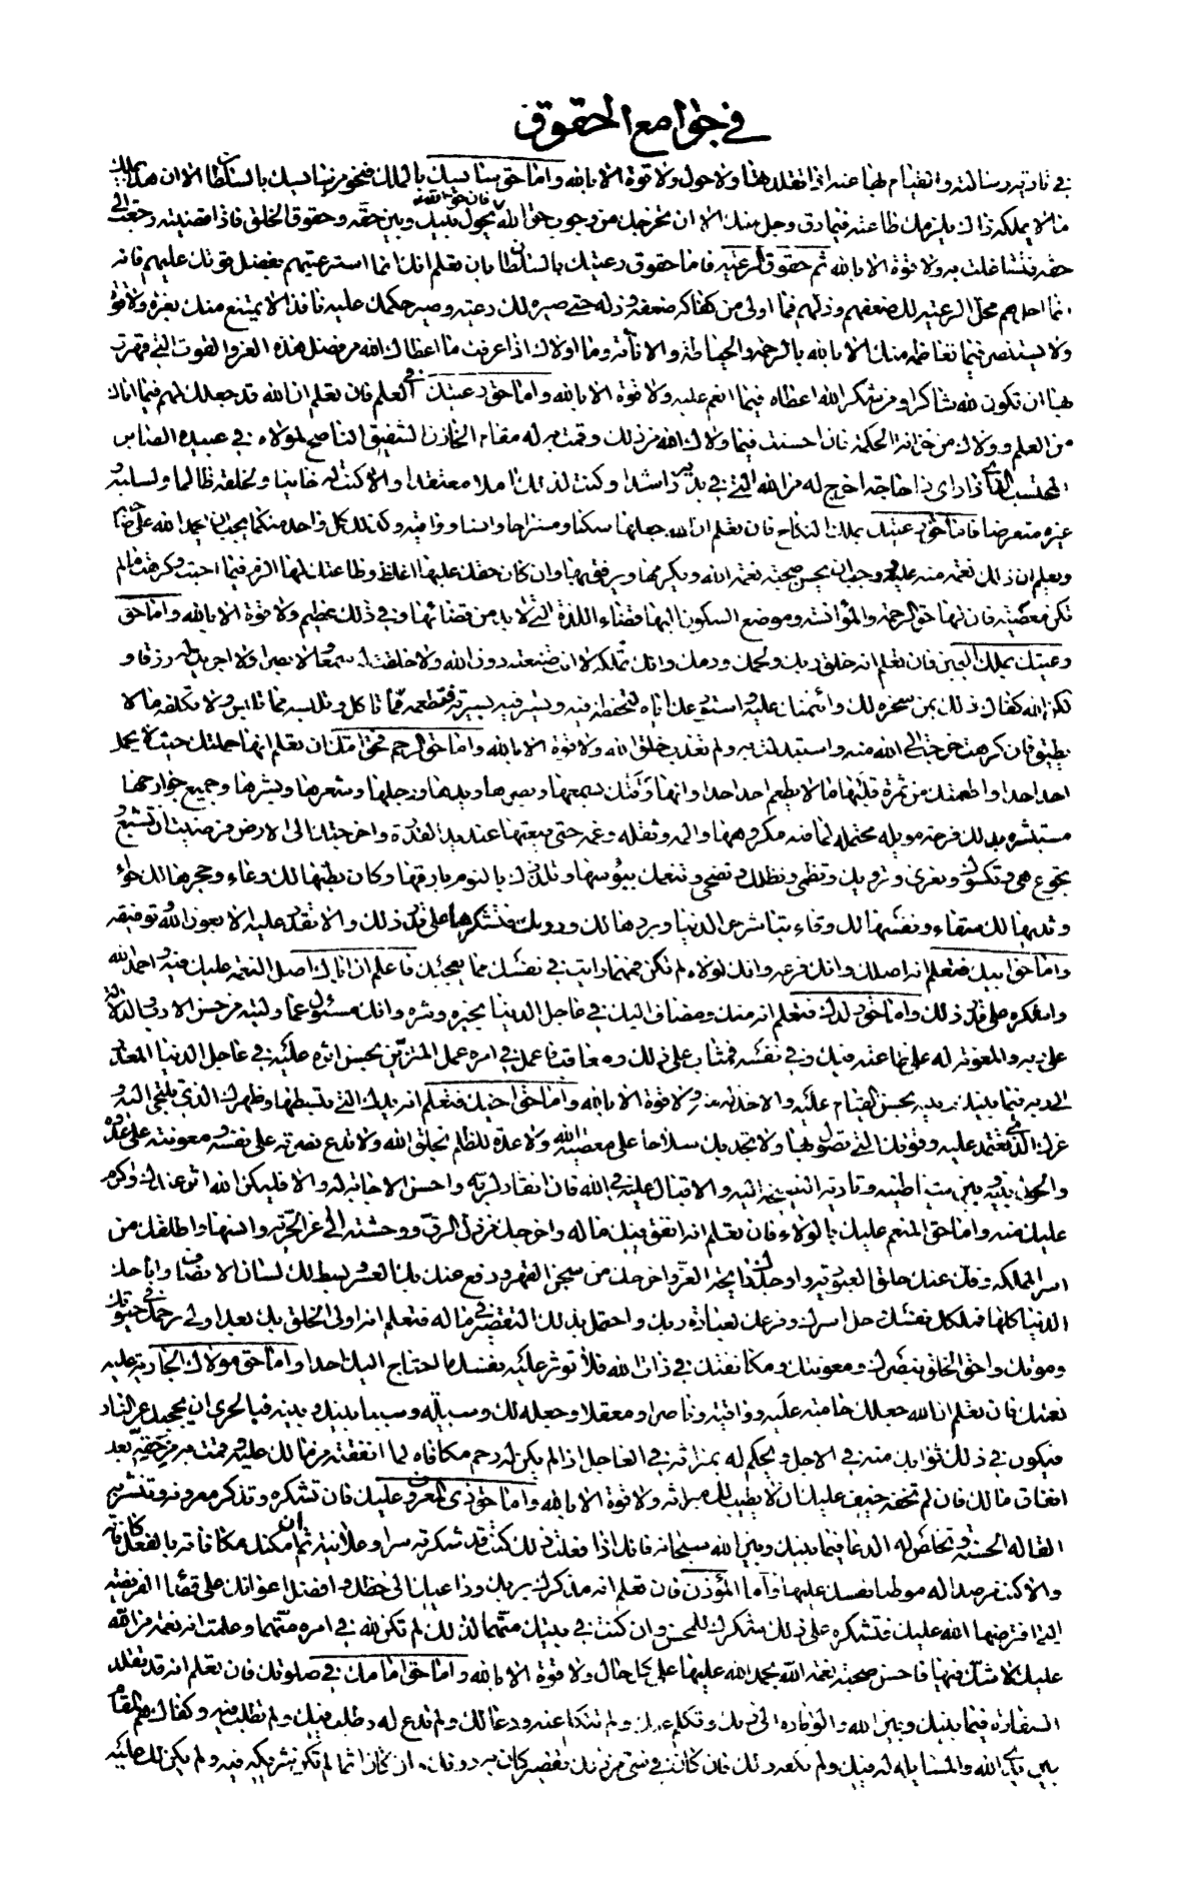 في جوامع الحقوق
في تادية رسالته والقيام بها عنه اذا تقلدتها ولا حول ولا قوة الا بالله واما حق سائسك بالملك فنحو من سائسك بالسلطان الا ان هذا يملك
ما لا يملكه ذاك يلزمك طاعته فيما دق وجل منك الا ان تخرجك من وجوب حق الله فان حق الله يحول بينك وبين حقه وحقوق الخلق فاذا قضيته رجعت الى
حقه فتشاغلت به ولا قوة الا بالله ثم حقوق الرعية فاما حقوق رعيتك بالسلطان فان تعلم انك انما استرعيتهم بفضل قوتك عليهم فانه
انما احلهم محل الرعية لك ضعفهم وذلهم فما اولى من كفاكه ضعفه وذله حتى صيره لك رعية وصير حكمك عليه نافذا لا يمتنع منك بعزة ولا قوة
ولا يستنصر فيما تعاظمه منك الا بالله بالرحمة والحياطة والاناة وما اولاك اذا عرفت ما اعطاك الله من فضل هذه العزة والقوة التي قهرت
بها ان تكون لله شاكرا ومن شكر الله اعطاه فيما انعم عليه ولا قوة الا بالله واما حق رعيتك في العلم فان تعلم ان الله قد جعلك لهم فيما اتاك
من العلم وولاك من خزانة الحكمة فان احسنت فيما ولاك الله من ذلك وقمت به له مقام الخازن الشفيق الناصح لمولاه في عبيده الصابر
المحتسب الذي اذا راى ذا حاجة اخرج له من الله التي في يديه راشدا وكنت لذلك املا معتقدا والا كنت له خائنا ولخلقه ظالما ولسلبه
وعزه متعرضا فاما حق رعيتك بملك النكاح فان تعلم ان الله جعلها سكنا ومستراحا وانسا وواقية وكذلك كل واحد منكما يجب ان يحمد الله على صاحبه
ويعلم ان ذلك نعمة منه عليه ووجب ان يحسن صحبة نعمة الله ويكرمها ويرفق بها وان كان حقك عليها اغلظ وطاعتك لها الزم فيما احبت وكرهت ما لم
تكن معصية فان لها حق الرحمة والمؤانسة وموضع السكون اليها قضاء اللذة التي لا بد من قضائها وفي ذلك عظيم ولا قوة الا بالله واما حق
رعيتك بملك اليمين فان تعلم انه خلق ربك ولحمك ودمك وانك تملكه لا ان صنعته دون الله ولا خلقت له سمعا ولا بصرا ولا اجريت له رزقا و
لكن الله كفاك ذلك بمن سخره لك وائتمنك عليه واستودعك اياه لتحفظه فيه وتسير فيه بسيرته فتطعمه مما تاكل وتلبسه مما تلبس ولا تكلفه ما لا
يطيق فان كرهت خرجت الى الله منه واستبدلت به ولم تعذب خلق الله ولا قوة الا بالله واما حق الرحم فحق امك ان تعلم انها حملتك حيث لا يحمل
احد احدا واطعمتك من ثمرة قلبها ما لا يطعم احد احدا وانها وقتك بسمعها وبصرها ويدها ورجلها وشعرها وبشرها وجميع جوارحها
مستبشرة بذلك فرحة موبلة محتملة لما فيه مكروهها والمه وثقله وغمه حتى دفعتها عنك يد القدرة واخرجتك الى الارض فرضيت ان تشبع
وتجوع هي وتكسوك وتعرى وترويك وتظمى وتظلك وتضحى وتنعمك ببؤسها وتلذذك بالنوم بارقها وكان بطنها لك وعاء وحجرها لك حواء
وثديها لك سقاء ونفسها لك وقاء تباشر حر الدنيا وبردها لك ودونك فتشكرها على قدر ذلك ولا تقدر عليه الا بعون الله وتوفيقه
واما حق ابيك فتعلم انه اصلك وانك فرعه وانك لولاه لم تكن فمهما رايت في نفسك مما يعجبك فاعلم ان اباك اصل النعمة عليك فيه واحمد الله
واشكره على قدر ذلك واما حق ولدك فتعلم انه منك ومضاف اليك في عاجل الدنيا بخيره وشره وانك مسئول عما وليته من حسن الادب والدلالة
على ربه والمعونة له على طاعته فيك وفي نفسه فمثاب على ذلك ومعاقب فاعمل في امره عمل المتزين بحسن اثره عليه في عاجل الدنيا المعذر
الى ربه فيما بينك وبينه بحسن القيام عليه والاخذ له منه ولا قوة الا بالله واما حق اخيك فتعلم انه يدك التي تبسطها وظهرك الذي تلتجئ اليه و
عزك الذي تعتمد عليه وقوتك التي تصول بها ولا تتخذه سلاحا على معصية الله ولا عدة للظلم لخلق الله ولا تدع نصرته على نفسه ومعونته على عدوه
والحول بينه وبين شياطينه وتادية النصيحة اليه والاقبال عليه في الله فان انقاد لربه واحسن الاجابة له والا فليكن الله اثر عندك واكرم
عليك منه واما حق المنعم عليك بالولاء فان تعلم انه انفق فيك ماله واخرجك من ذل الرق ووحشته الى عز الحرية وانسها واطلقك من
اسر الملكة وفك عنك حلق العبودية واوجدك رائحة العز واخرجك من سجن القهر ودفع عنك العسر وبسط لك لسان الانصاف واباحك
الدنيا كلها فملكك نفسك وحل اسرك وفرغك لعبادة ربك واحتمل بذلك التقصير في ماله فتعلم انه اولى الخلق بك بعد اولى رحمك في حيوتك
وموتك واحق الخلق بنصرك ومعونتك ومكانفتك في ذات الله فلا تؤثر عليه نفسك ما احتاج اليك احدا واما حق مولاك الجارية عليه
نعمتك فان تعلم ان الله جعلك حامية عليه وواقية وناصرا ومعقلا وجعله لك وسيلة وسببا بينك وبينه فبالحري ان يحجبك عن النار
فيكون في ذلك ثوابك منه في الاجل ويحكم لك بميراثه في العاجل اذا لم يكن له رحم مكافاة لما انفقته من مالك عليه وقمت به من حقه بعد
انفاق مالك فان لم تخفه خيف عليك ان لا يطيب لك ميراثه ولا قوة الا بالله واما حق ذي المعروف عليك فان تشكره وتذكر معروفه وتنشر به
القالة الحسنة وتخلص له الدعاء فيما بينك وبين الله سبحانه فانك اذا فعلت ذلك كنت قد شكرته سرا وعلانية ثم ان امكنك مكافاته بالفعل كافاته
والا كنت مرصدا له موطنا نفسك عليها واما المؤذن فان تعلم انه مذكرك بربك وداعيك الى حظك وافضل اعوانك على قضاء الفريضة
التي افترضها الله عليك فتشكره على ذلك شكرك للمحسن وان كنت في بيتك متهما لذلك لم تكن لله في امره متهما وعلمت انه نعمة من الله
عليك لا شك فيها فاحسن صحبة نعمة الله بحمد الله عليها على كل حال ولا قوة الا بالله واما حق امامك في صلوتك فان تعلم انه قد تقلد
السفارة فيما بينك وبين الله والوفادة الى ربك وتكلم عنك ولم تتكلم عنه ودعا لك ولم تدع له وطلب فيك ولم تطلب فيه وكفاك هم المقام
بين يدي الله والمسائلة له فيك ولم تكفه ذلك فان كان في شئ من ذلك تقصير كان به دونك وان كان اثما لم تكن شريكه فيه ولم يكن لك عليه